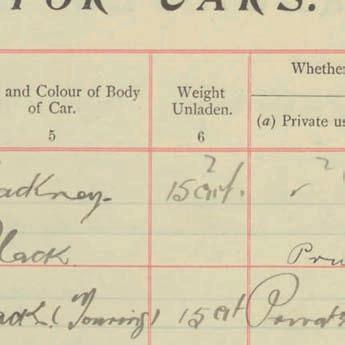 CARS.
and Colour of Body
of Car.
5
Weight
Unladen.
6
Whether
(a) Private us
?
?
ackney.
15 cwt.
lack
Priv
ack (Touring)
15 cwt
Privat